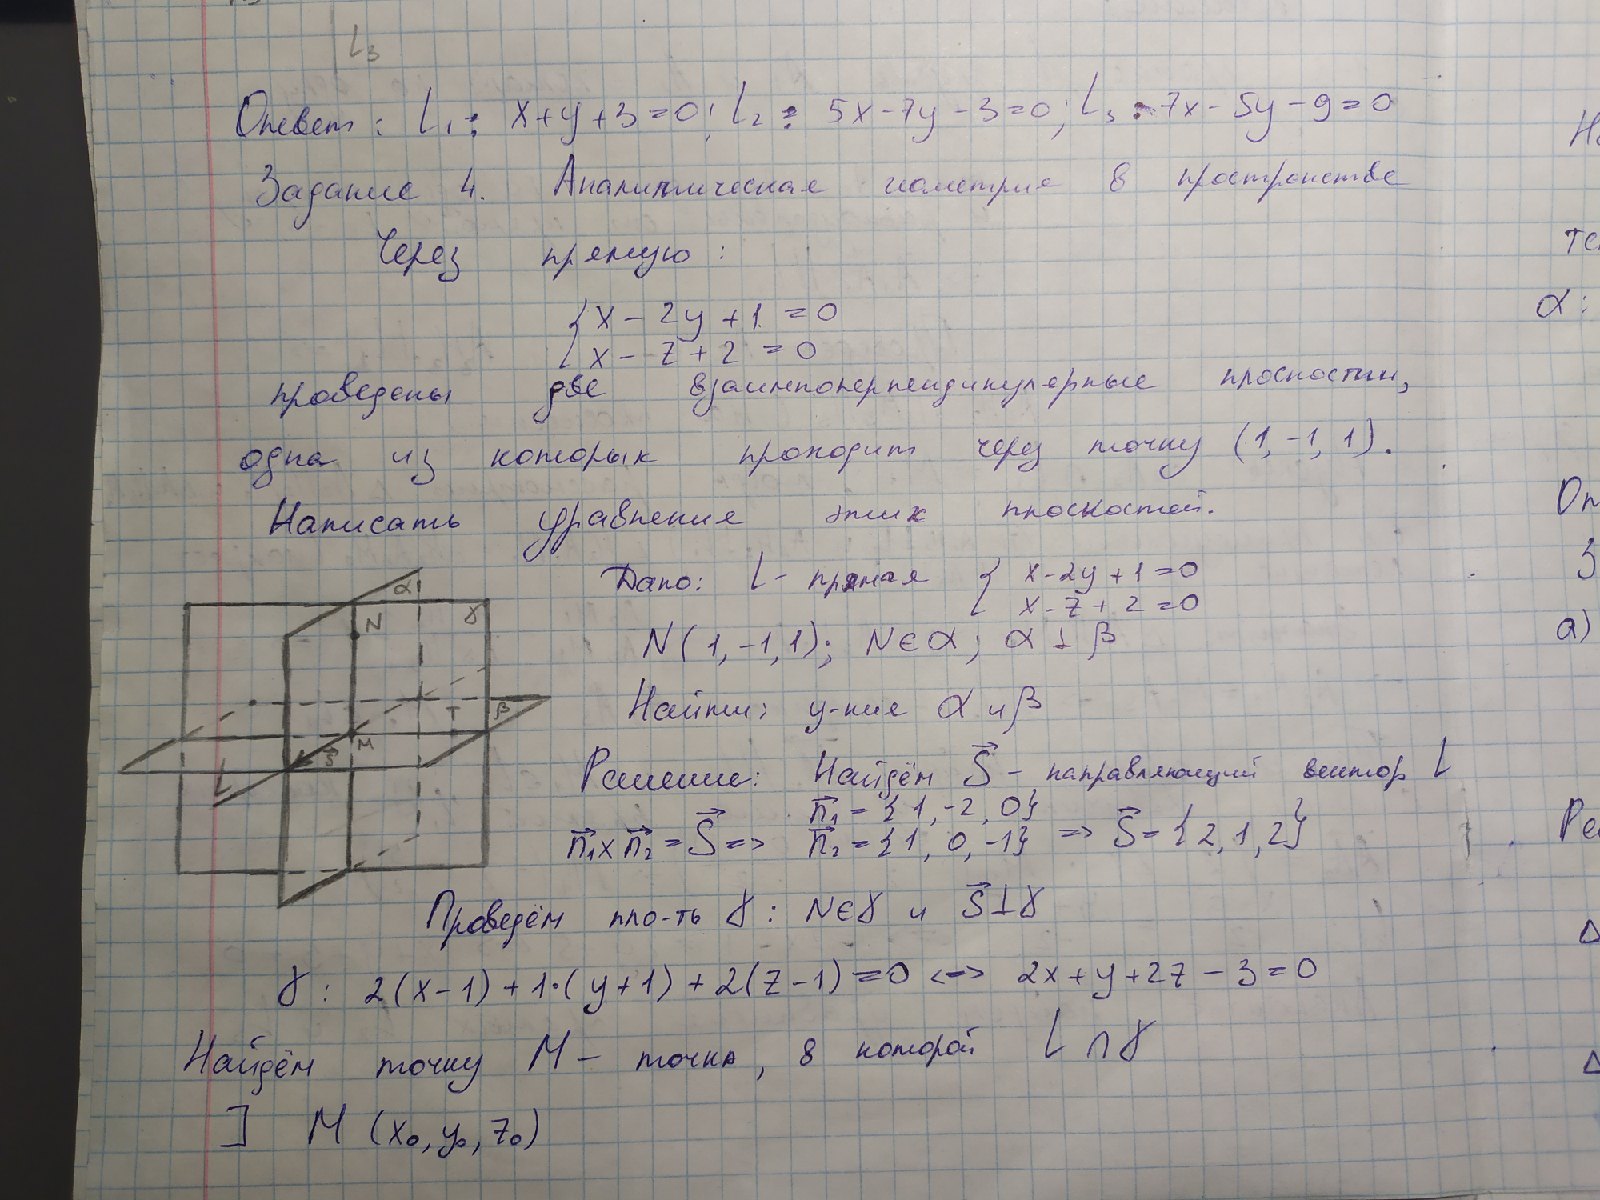 L₃
Ответ: L₁: x+y+3=0; L₂: 5x-7y-3=0; L₃: 7x-5y-9=0
Задание 4. Аналитическая геометрия в пространстве
Через прямую:
{ x - 2y + 1 = 0
{ x - z + 2 = 0
проведены две взаимноперпендикулярные плоскости,
одна из которых проходит через точку (1, -1, 1).
Написать уравнения этих плоскостей.
Дано: L - прямая { x-2y+1=0
{ x-z+2=0
N(1,-1,1); N∈α; α⊥β
Найти: у-ние α и β
Решение: Найдём S⃗ - направляющий вектор L
n⃗₁ = {1, -2, 0}
n⃗₁×n⃗₂ = S⃗ => n⃗₂ = {1, 0, -1} => S⃗ = {2, 1, 2}
α
N
γ
T
β
M
S⃗
L
Проведём пло-ть γ: N∈γ и S⃗⊥γ
γ: 2(x-1)+1·(y+1)+2(z-1)=0 <=> 2x+y+2z-3=0
Найдём точку M - точка, в которой L∩γ
] M (x₀, y₀, z₀)
α:
а)